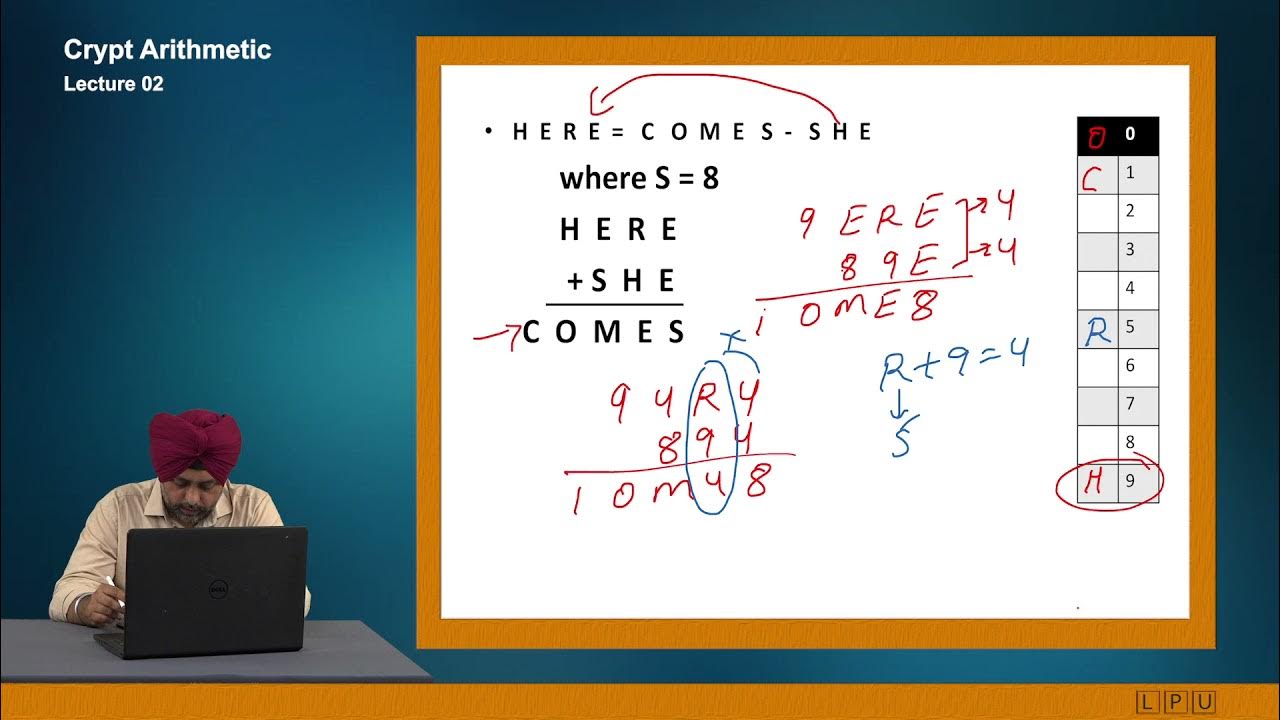 Crypt Arithmetic
Lecture 02
• H E R E = C O M E S - S H E
where S = 8
H E R E
+ S H E
C O M E S
9 E R E → 4
8 9 E → 4
1 0 M E 8
9 4 R 4
8 9 4
1 0 M 4 8
R + 9 = 4
↓
5
O 0
C 1
2
3
4
R 5
6
7
8
H 9
DELL
L P U